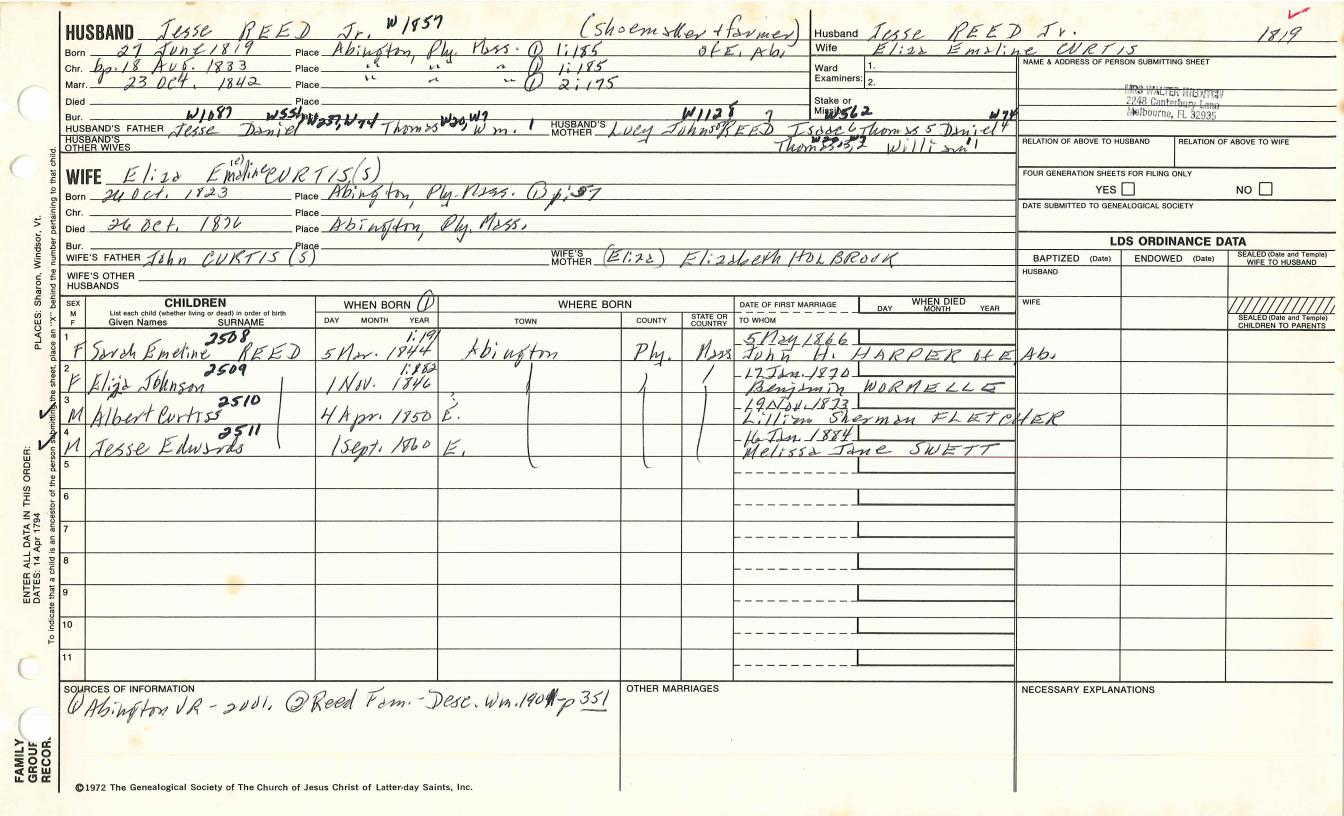 HUSBAND Jesse REED Jr. W1857 (Shoemaker + farmer)
Born 27 June 1819 Place Abington, Ply. Mass. ① 1:185 of E. Ab.
Chr. bp. 18 Aug. 1833 Place " " " ① 1:185
Marr. 23 Oct. 1842 Place " " " ① 2:175
Died Place
Bur. Place
W1087 W551 W257, W74 W20, W7 W1128 W562 W74
HUSBAND'S FATHER Jesse Daniel Thomas Wm. 1 HUSBAND'S MOTHER Lucy Johnson REED Isaac 6 Thomas 5 Daniel 4
HUSBAND'S OTHER WIVES Thomas 3, 2 William 1
Husband Jesse REED Jr. 1819
Wife Eliza Emaline CURTIS
Ward Examiners: 1.
2.
Stake or Mission
NAME & ADDRESS OF PERSON SUBMITTING SHEET
MRS WALTER
2248 Canterbury Lane
Melbourne, FL 32935
RELATION OF ABOVE TO HUSBAND RELATION OF ABOVE TO WIFE
FOUR GENERATION SHEETS FOR FILING ONLY
YES NO
DATE SUBMITTED TO GENEALOGICAL SOCIETY
WIFE Eliza Emaline (e) CURTIS(S)
Born Oct. 1823 Place Abington, Ply. Mass. ① p:57
Chr. Place
Died 26 Oct. 1876 Place Abington, Ply. Mass.
Bur. Place
WIFE'S FATHER John CURTIS (S) WIFE'S MOTHER (Eliza) Elizabeth HOLBROOK
WIFE'S OTHER HUSBANDS
LDS ORDINANCE DATA
BAPTIZED (Date) ENDOWED (Date) SEALED (Date and Temple) WIFE TO HUSBAND
HUSBAND
WIFE
SEALED (Date and Temple) CHILDREN TO PARENTS
SEX M F CHILDREN WHEN BORN ① WHERE BORN DATE OF FIRST MARRIAGE WHEN DIED
List each child (whether living or dead) in order of birth
Given Names SURNAME DAY MONTH YEAR TOWN COUNTY STATE OR COUNTRY TO WHOM DAY MONTH YEAR
2508 1:191 5 May 1866
1 F Sarah Emeline REED 5 Mar. 1844 Abington Ply. Mass John H. HARPER of E. Ab.
2509 1:182 17 Jan. 1870
2 F Eliza Johnson 1 Nov. 1846 Benjamin WORMELLE
2510 19 Nov. 1873
3 M Albert Curtiss 4 Apr. 1850 E. Lillian Sherman FLETCHER
2511 16 Jan. 1884
4 M Jesse Edwards 1 Sept. 1860 E. Melissa Jane SWETT
5
6
7
8
9
10
11
SOURCES OF INFORMATION
① Abington VR - 2 vol. ② Reed Fam. - Desc. Wm. 1901 - p 351
OTHER MARRIAGES
NECESSARY EXPLANATIONS
©1972 The Genealogical Society of The Church of Jesus Christ of Latter-day Saints, Inc.
FAMILY GROUP RECOR
ENTER ALL DATA IN THIS ORDER:
DATES: 14 Apr 1794
PLACES: Sharon, Windsor, Vt.
To indicate that a child is an ancestor of the person submitting the sheet, place an "X" behind the number pertaining to that child.